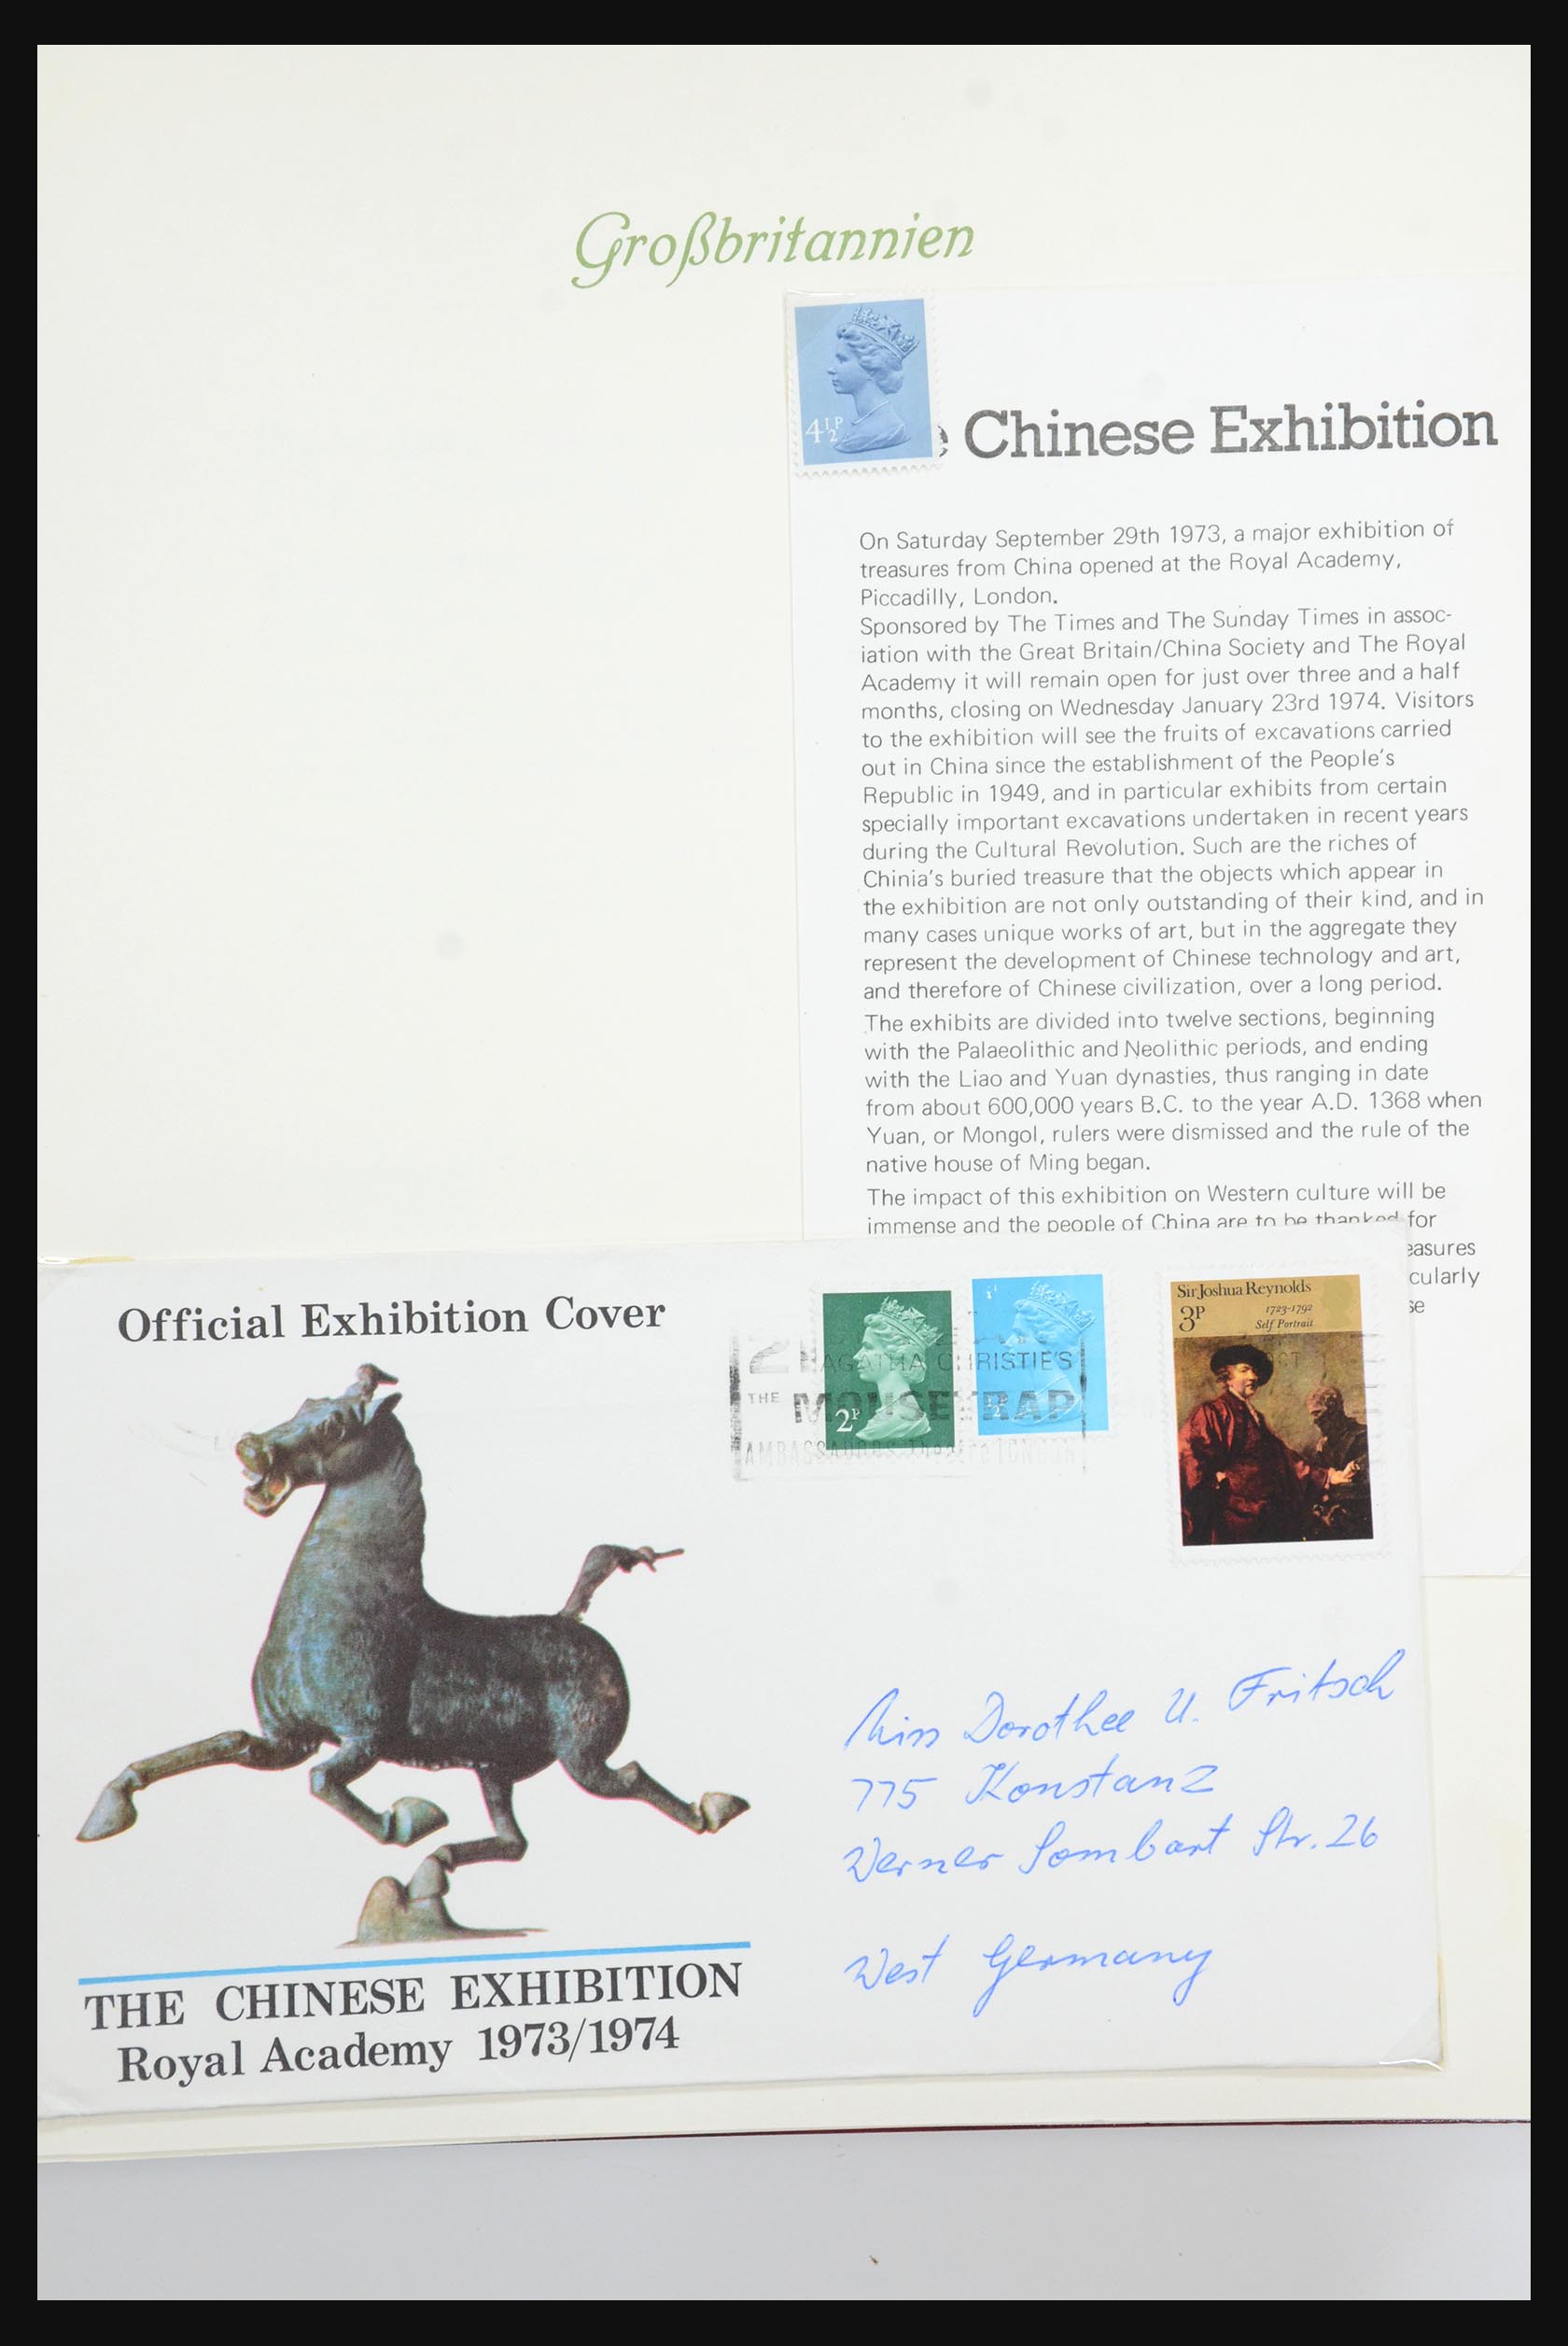 Großbritannien
4½P
e Chinese Exhibition
On Saturday September 29th 1973, a major exhibition of
treasures from China opened at the Royal Academy,
Piccadilly, London.
Sponsored by The Times and The Sunday Times in assoc-
iation with the Great Britain/China Society and The Royal
Academy it will remain open for just over three and a half
months, closing on Wednesday January 23rd 1974. Visitors
to the exhibition will see the fruits of excavations carried
out in China since the establishment of the People's
Republic in 1949, and in particular exhibits from certain
specially important excavations undertaken in recent years
during the Cultural Revolution. Such are the riches of
Chinia's buried treasure that the objects which appear in
the exhibition are not only outstanding of their kind, and in
many cases unique works of art, but in the aggregate they
represent the development of Chinese technology and art,
and therefore of Chinese civilization, over a long period.
The exhibits are divided into twelve sections, beginning
with the Palaeolithic and Neolithic periods, and ending
with the Liao and Yuan dynasties, thus ranging in date
from about 600,000 years B.C. to the year A.D. 1368 when
Yuan, or Mongol, rulers were dismissed and the rule of the
native house of Ming began.
The impact of this exhibition on Western culture will be
immense and the people of China are to be thanked for
easures
cularly
se
Official Exhibition Cover
2P
½P
Sir Joshua Reynolds
3P
1723-1792
Self Portrait
AGATHA CHRISTIE'S
THE MOUSETRAP
AMBASSADORS Theatre LONDON
OCT
Miss Dorothee U. Fritsch
775 Konstanz
Werner Sombart Str. 26
West Germany
THE CHINESE EXHIBITION
Royal Academy 1973/1974